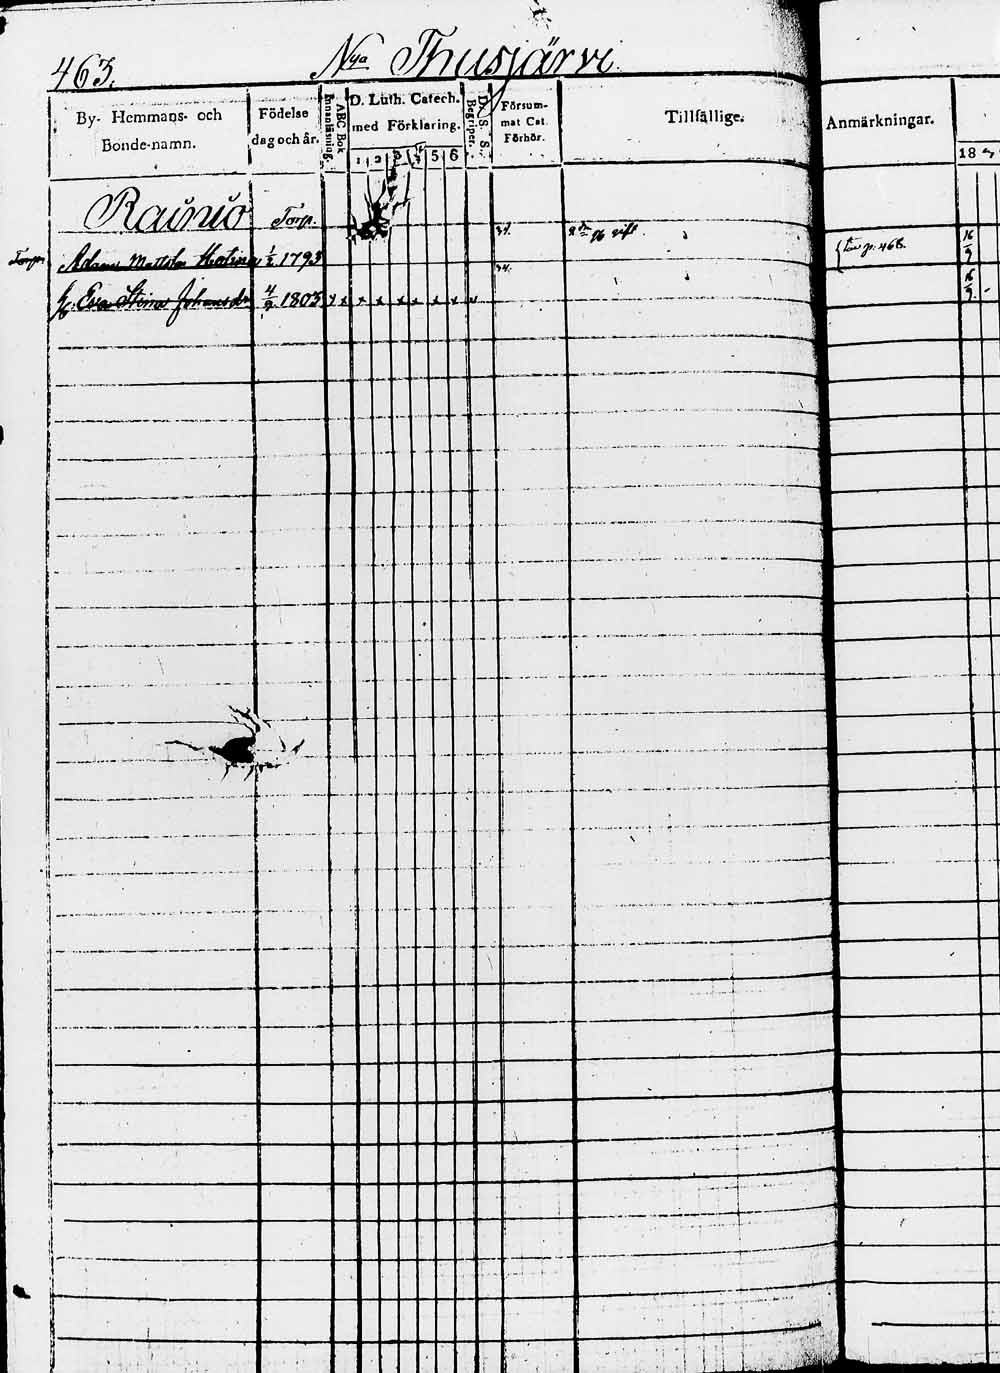 463. Nya Thusjärvi.
By- Hemmans- och Bonde-namn.
Födelse dag och år.
ABC Bok Innanläsning.
D. Luth. Catech. med Förklaring.
1 2 3 4 5 6
D. S. S. Begriper.
Försummat Cat. Förhör.
Tillfällige.
Anmärkningar.
18
Rainio Torp.
Torp. Adam Mattsson 1/2 1793 34. p. 468. 16/9
h. Eva Stina Johansdr 4/9 1803 x x x x x x x x 34. 16/9